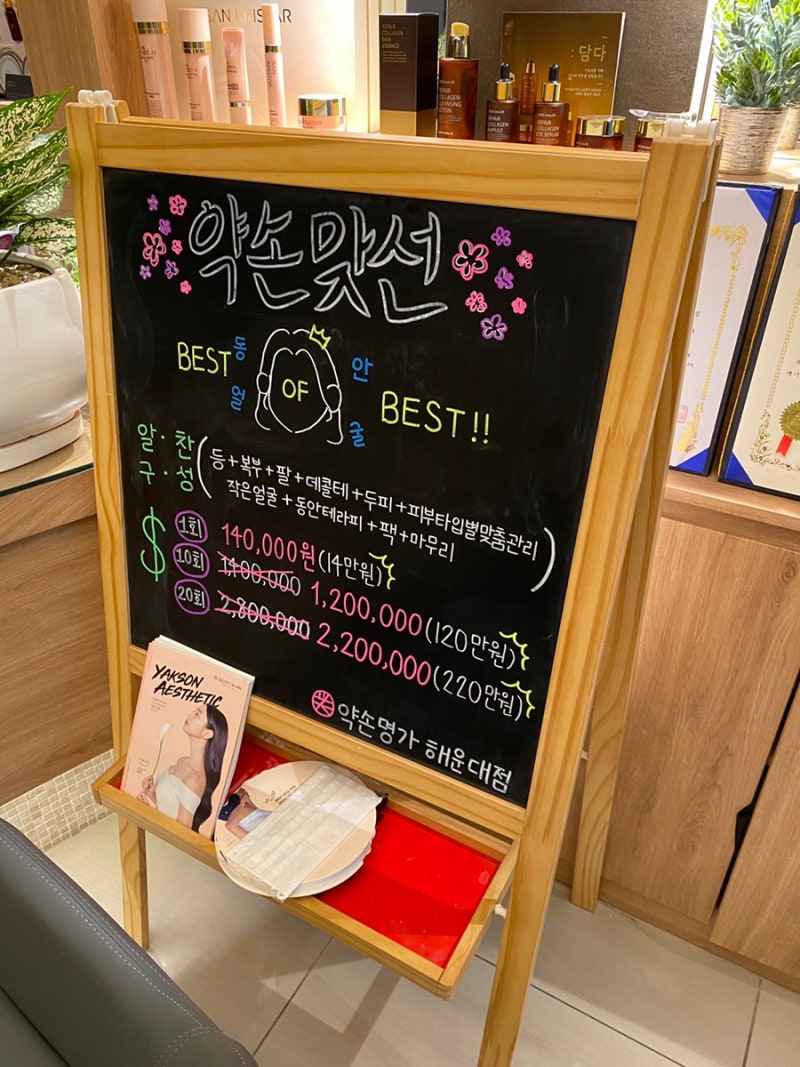 REPAIR COLLAGEN SKIN ESSENCE
:담다
REPAIR COLLAGEN CLEANSING LOTION
REPAIR COLLAGEN AMPULE
REPAIR COLLAGEN EYE SERUM
약손맞선
BEST 동얼 OF 안굴 BEST!!
알·찬
구·성
(등+복부+팔+데콜테+두피+피부타입별맞춤관리
작은얼굴+동안테라피+팩+마무리)
$ 1회 140,000원(14만원)
10회 1,400,000 1,200,000(120만원)
20회 2,800,000 2,200,000(220만원)
약손명가 해운대점
YAKSON
AESTHETIC